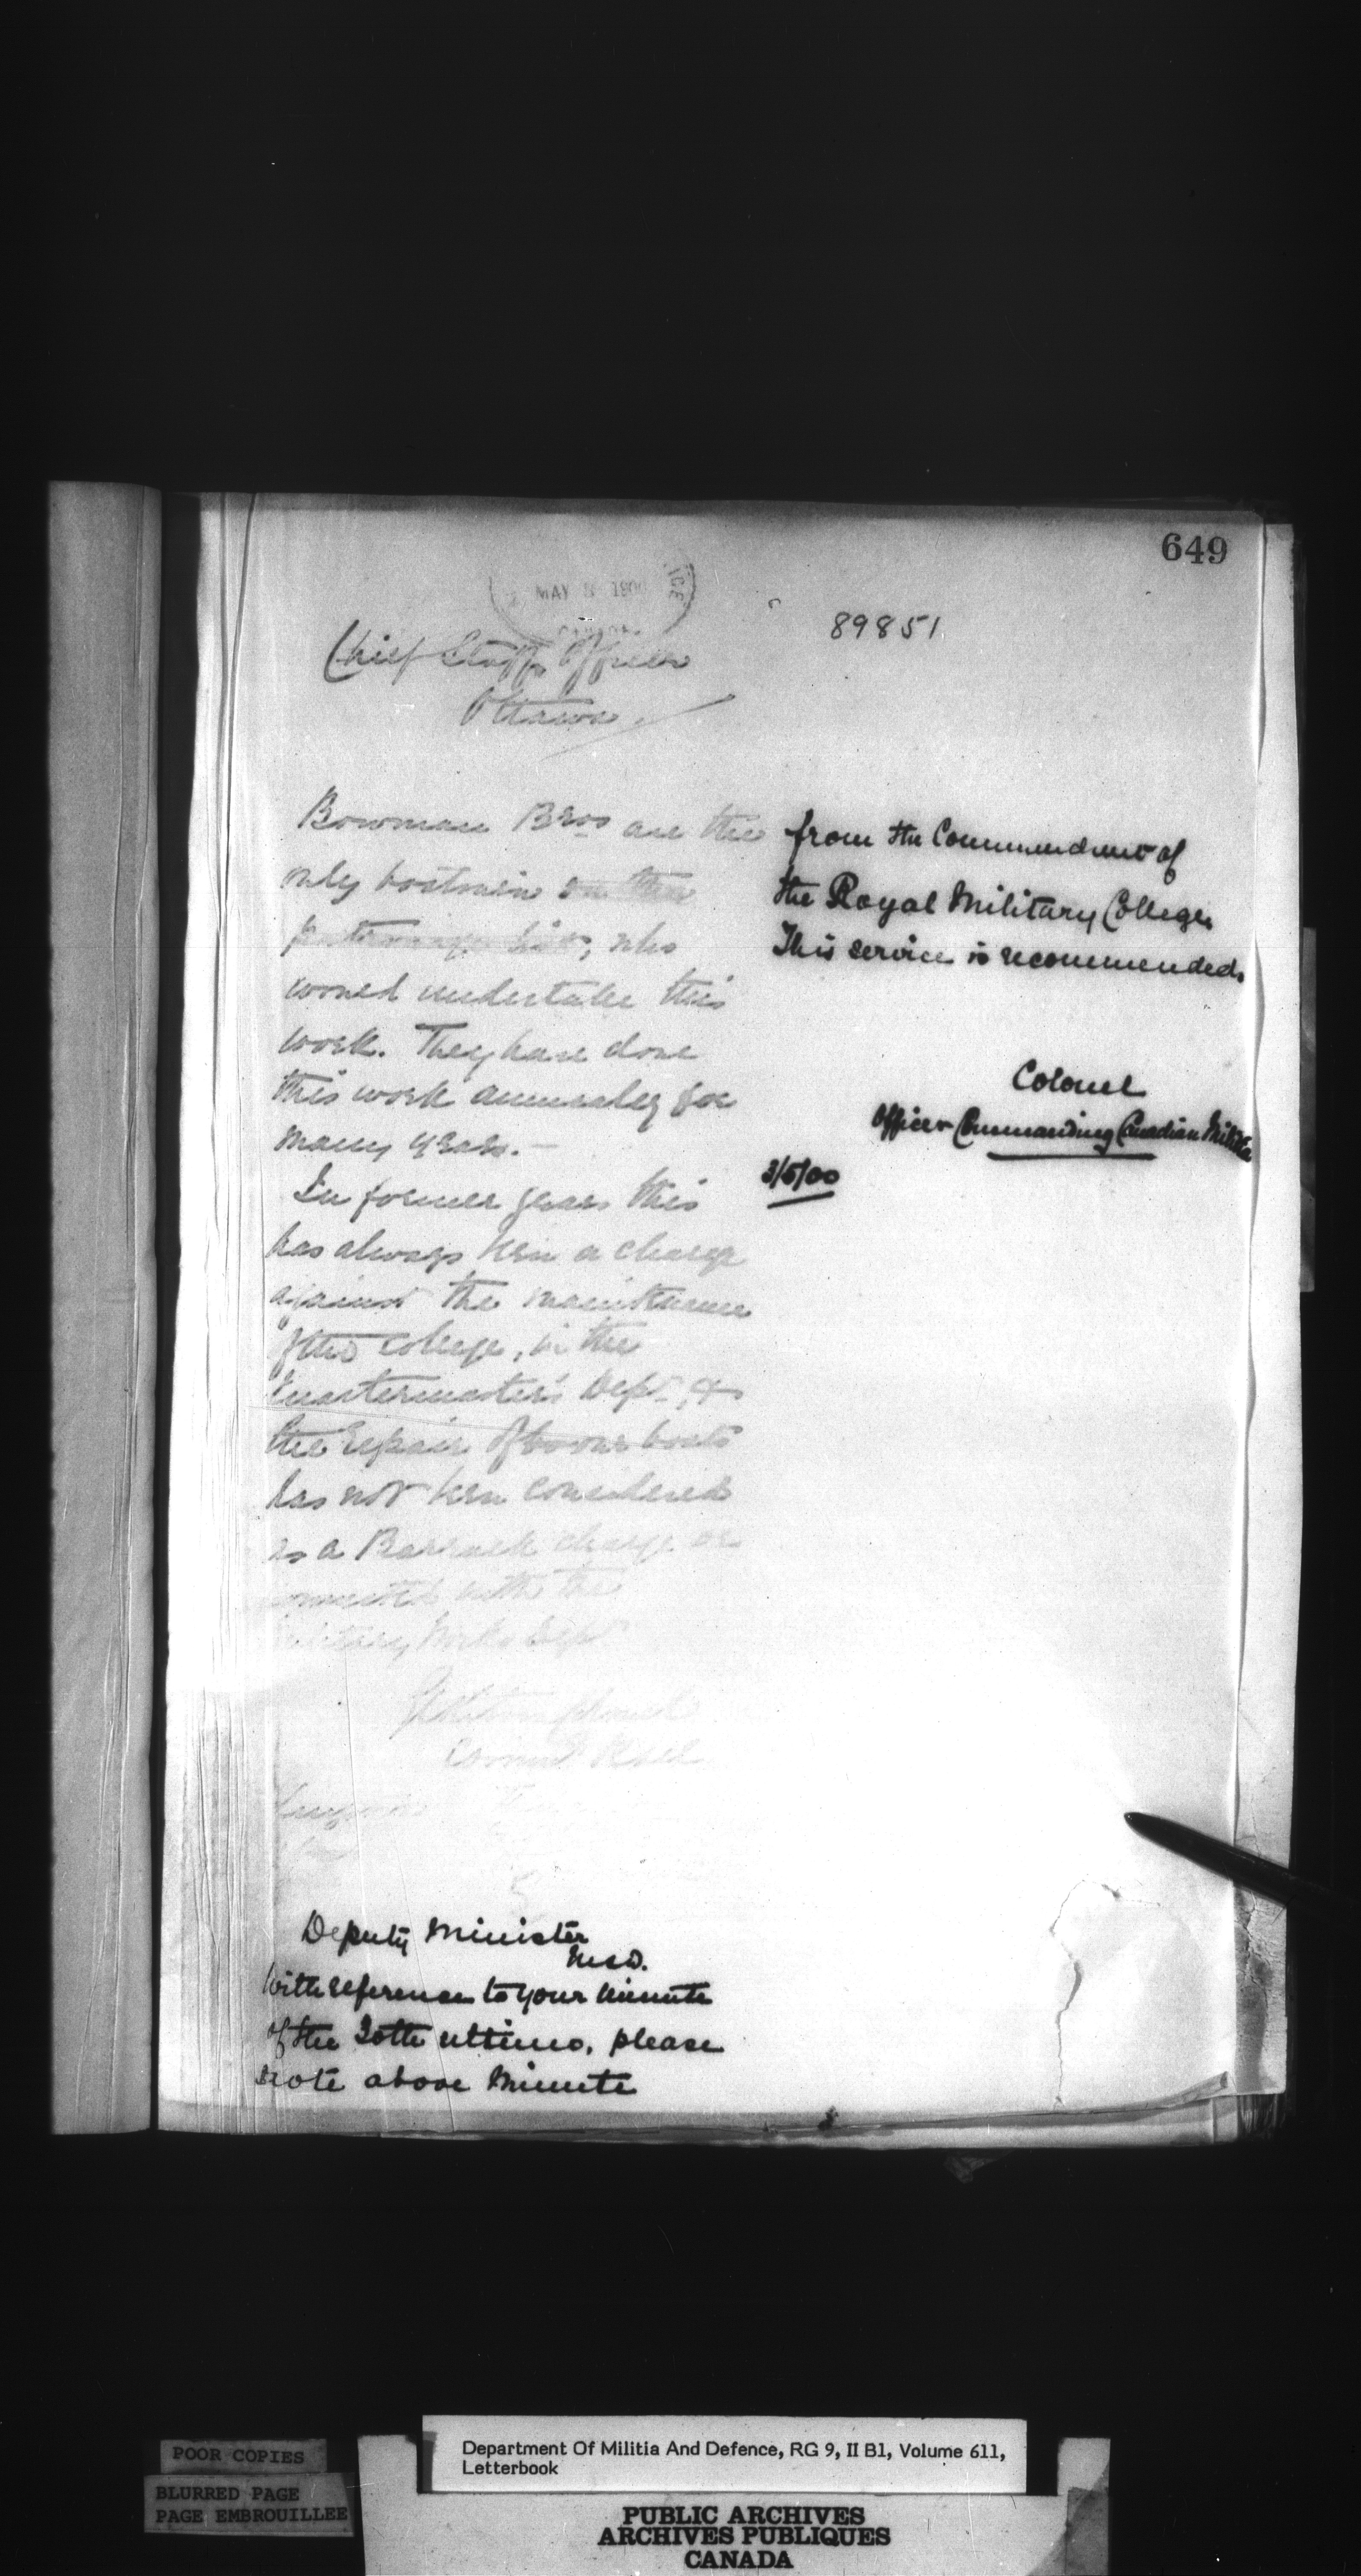 649
MAY 3 1900
89851
Chief Staff Officer
Ottawa.
Bowman Bros are the
only boatmen on the
patronage list, who
would undertake this
work. They have done
this work annually for
many years. -
In former years this
has always been a charge
against the maintenance
of the College, in the
Quartermaster's Dept, &
the repair of our boats
has not been considered
as a Barrack charge or
connected with the
Military Works Dept
Deputy Minister
M&D.
With reference to your minute
of the ultimo, please
note above Minute
from the Commandant of
the Royal Military College.
This service is recommended.
Colonel
Officer Commanding Canadian Militia
3/5/00
POOR COPIES
BLURRED PAGE
PAGE EMBROUILLEE
Department Of Militia And Defence, RG 9, II B1, Volume 611,
Letterbook
PUBLIC ARCHIVES
ARCHIVES PUBLIQUES
CANADA